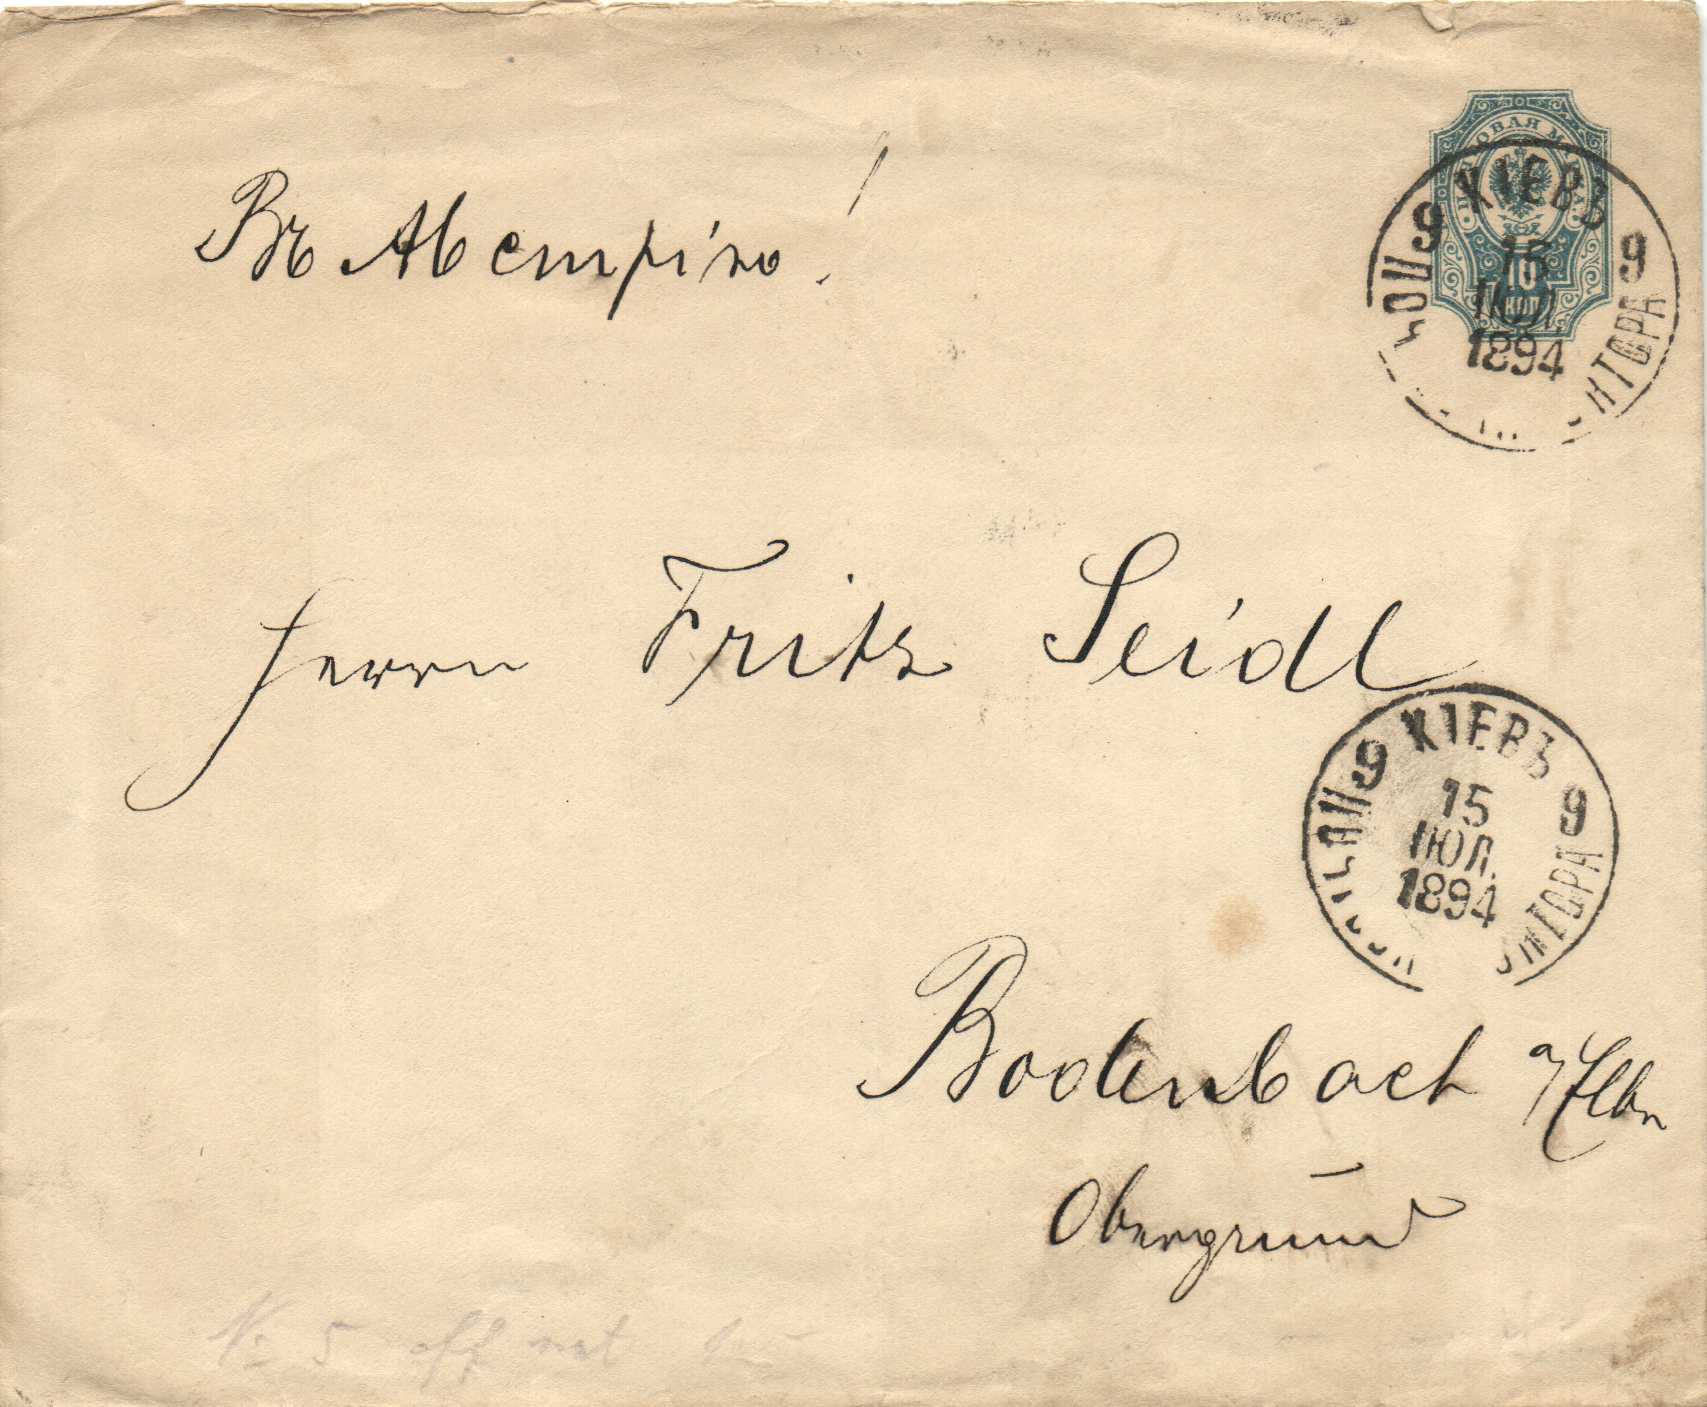 Въ Австрiю!
ПОЧТОВАЯ МАРКА
10
КОП
9 КІЕВЪ 9
15
ІЮЛ.
1894
Herrn Fritz Seidl
9 КІЕВЪ 9
15
ІЮЛ.
1894
Bodenbach a/Elbe
Obergrund
№ 5